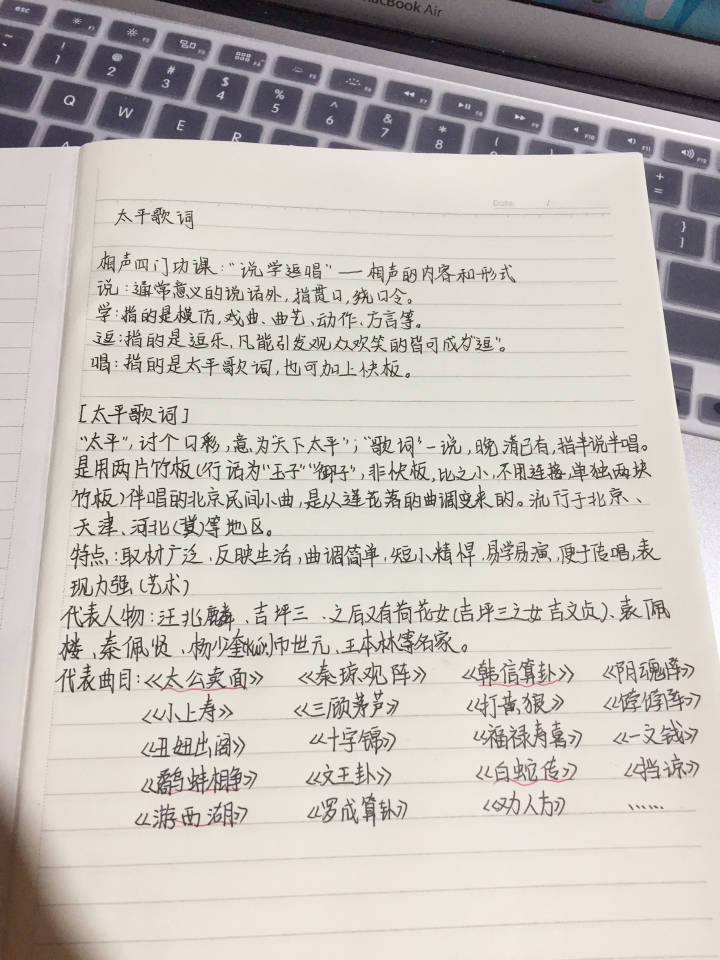 MacBook Air
esc F1 F2 F3 F4 F5 F6 F7 F8 F9 F10 F11 F12
~ ! 1 @ 2 # 3 $ 4 % 5 ^ 6 & 7 * 8 ( + =
Q W E R } ]
A
Date /
太平歌词
相声四门功课："说学逗唱"—相声的内容和形式
说：通常意义的说话外，指贯口，绕口令。
学：指的是模仿，戏曲、曲艺、动作、方言等。
逗：指的是逗乐，凡能引发观众欢笑的皆可成为"逗"。
唱：指的是太平歌词，也可加上快板。
[太平歌词]
"太平"，讨个口彩，意为"天下太平"；"歌词"一说，晚清已有，指半说半唱。
是用两片竹板(行话为"玉子""御子"，非快板，比之小，不用连接，单独两块
竹板)伴唱的北京民间小曲，是从莲花落的曲调变来的。流行于北京、
天津、河北(冀)等地区。
特点：取材广泛、反映生活，曲调简单，短小精悍、易学易演，便于传唱，表
现力强(艺术)
代表人物：汪兆麟、吉坪三、之后又有荷花女(吉坪三之女吉文贞)、袁佩
楼、秦佩贤、杨少奎(kuí)师世元、王本林等名家。
代表曲目：《太公卖面》 《秦琼观阵》 《韩信算卦》 《阴魂阵》
《小上寿》 《三顾茅芦》 《打黄狼》 《饽饽阵》
《丑妞出阁》 《十字锦》 《福禄寿喜》 《一文钱》
《鹬蚌相争》 《文王卦》 《白蛇传》 《挡谅》
《游西湖》 《罗成算卦》 《劝人方》 ……